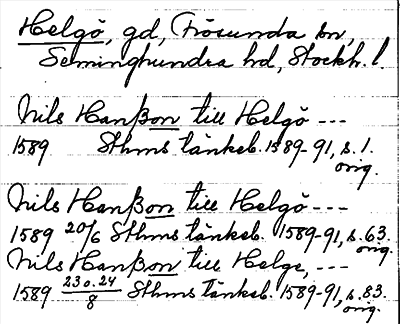 Helgö, gd, Frösunda sn,
Seminghundra hd, Stockh. l.
Nils Hanßon till Helgö ---
1589 Sthms tänkeb. 1589-91, s. 1.
orig.
Nils Hanßon till Helgö ---
1589 20/6 Sthms tänkeb. 1589-91, s. 63.
orig.
Nils Hanßon till Helge, ---
1589 23 o. 24/8 Sthms tänkeb. 1589-91, s. 83.
orig.